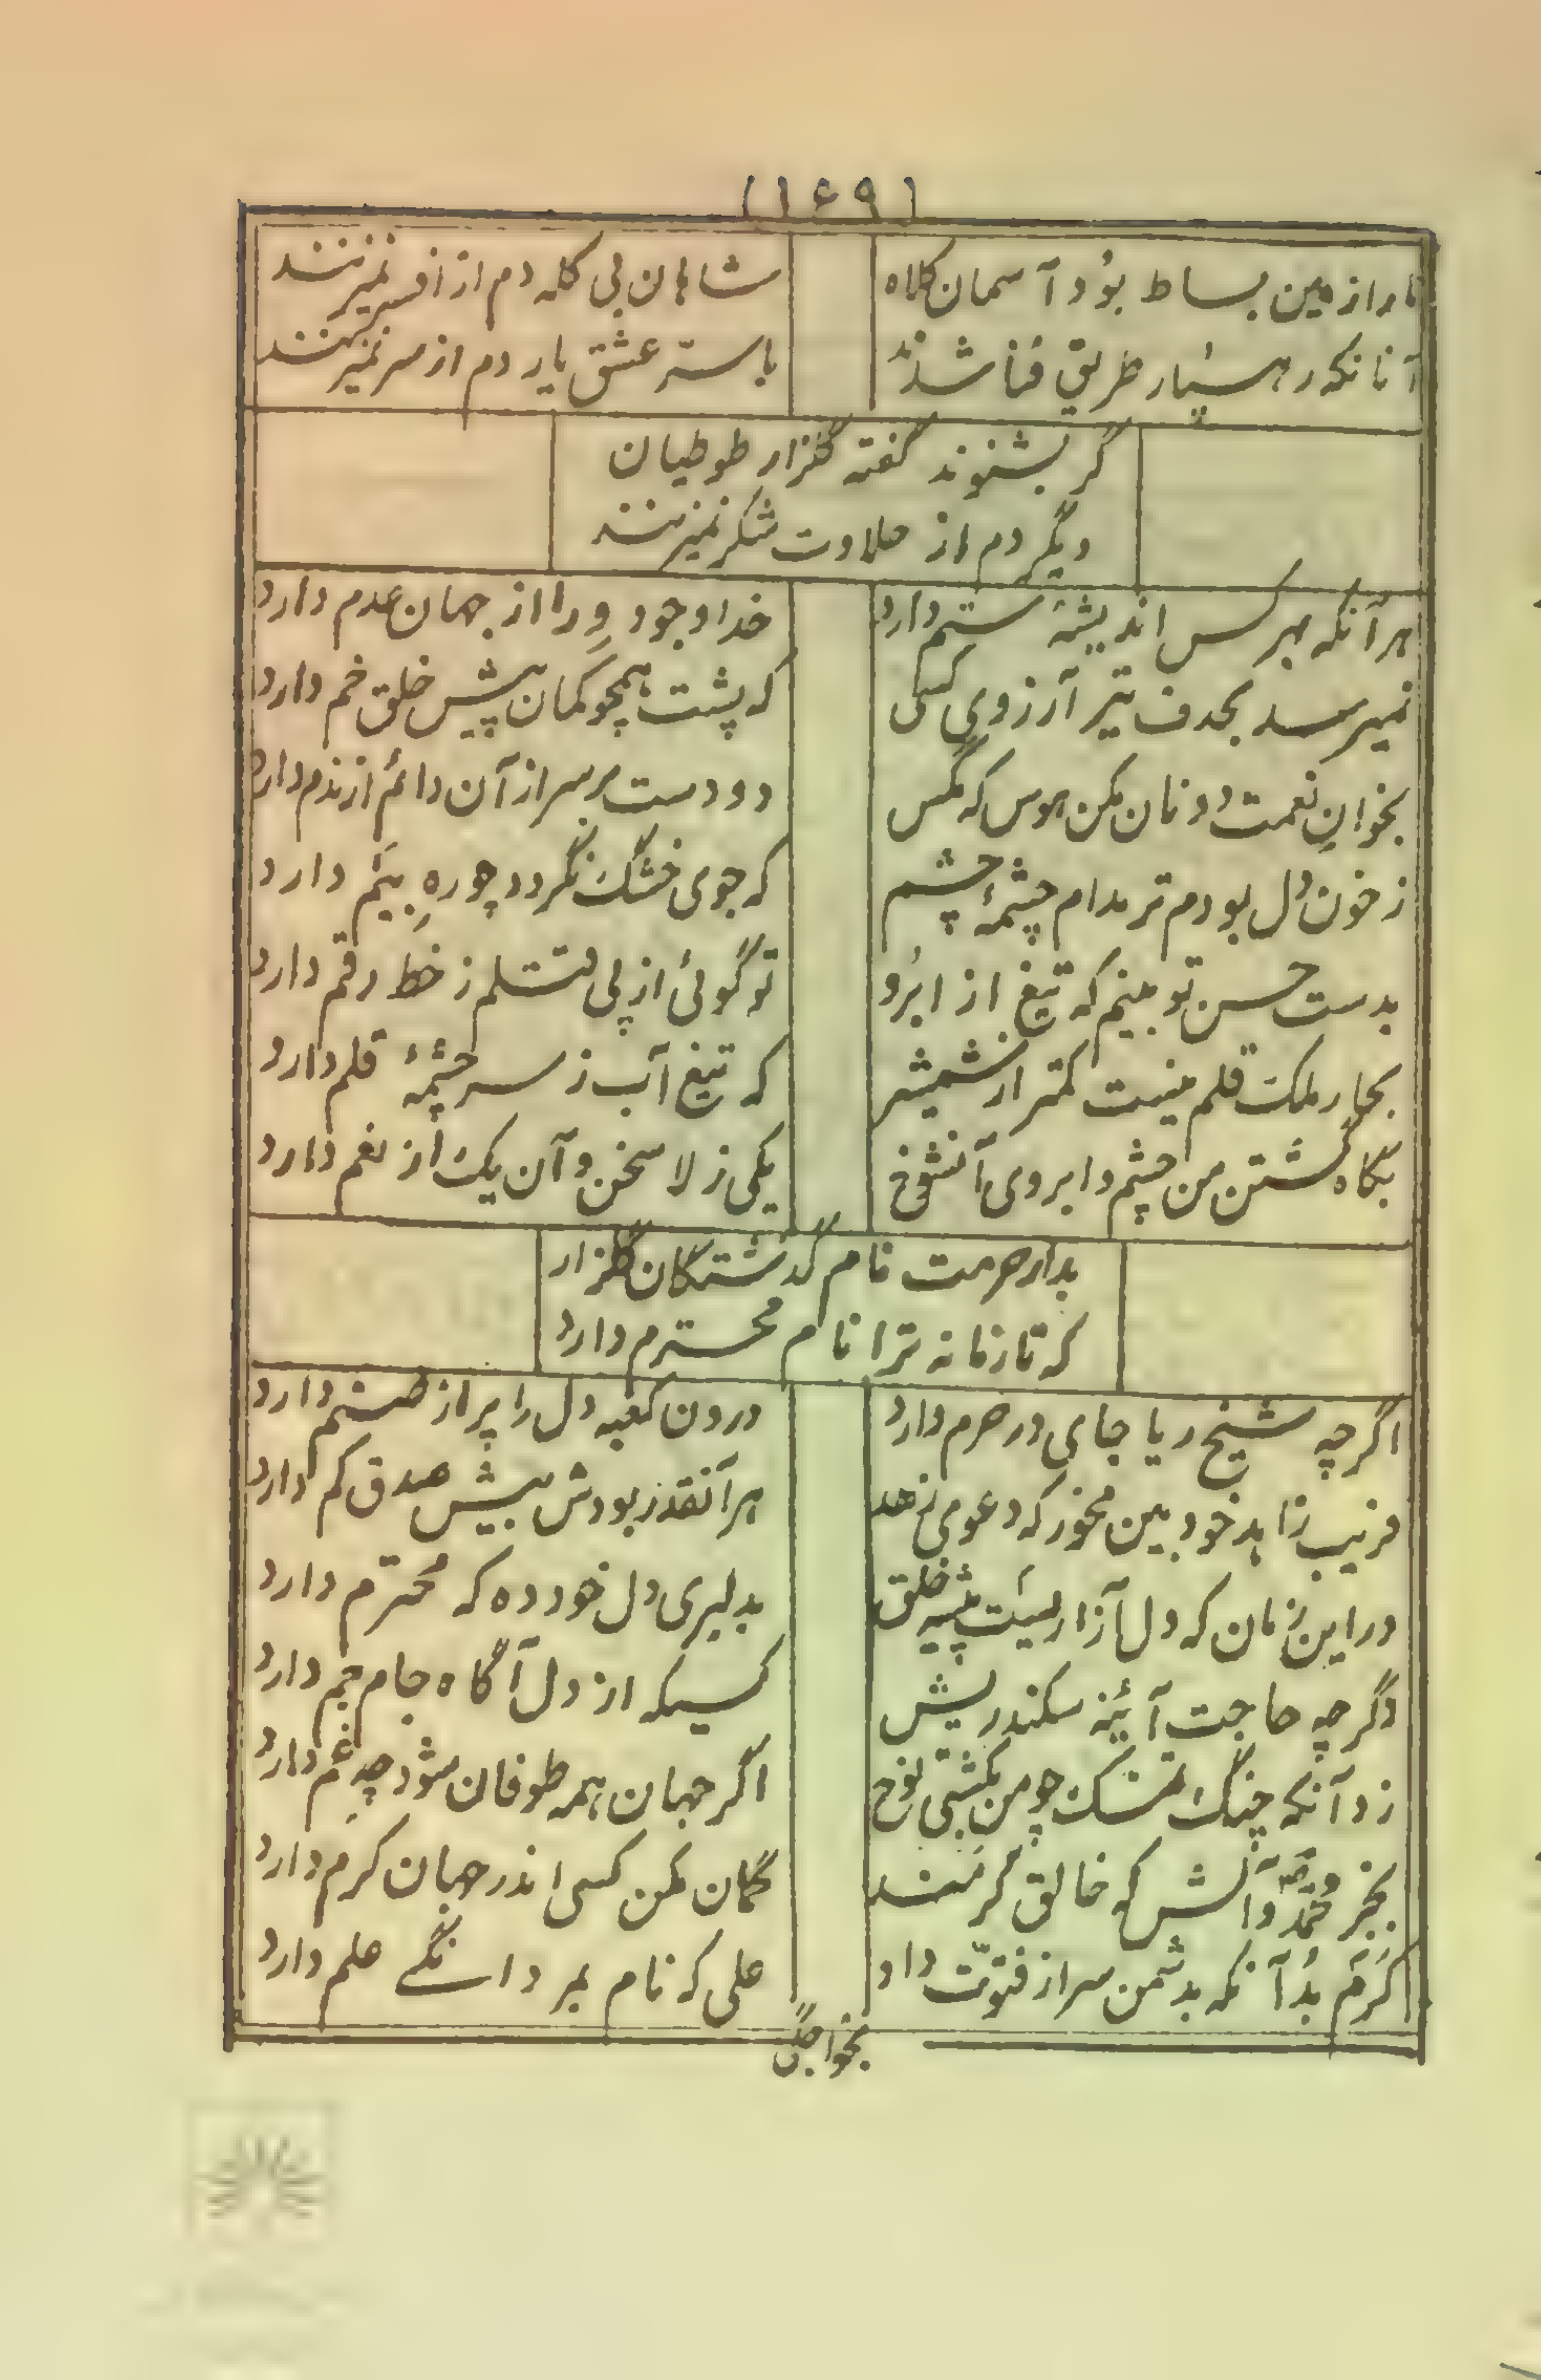 (۱۶۹)
ما را زمین بساط بُود آسمان کلاه
شاهان بی کله دم از افسر نمیزنند
آنانکه رهسپار طریق فنا شدند
با سرّ عشق یار دم از سر نمیزنند
گر بشنوند گفته گلزار طوطیان
دیگر دم از حلاوت شکر نمیزنند
هرآنکه بهر کس اندیشهٔ ستم دارد
خدا وجود وِ را از جهان عدم دارد
نمیرسد بهدف تیر آرزوی کسی
که پشت همچو کمان پیش خلق خم دارد
بخوانِ نعمت دونان مکن هوس که مگس
دو دست بر سر از آن دائم از ندم دارد
ز خون دل بودم تر مدام چشمهٔ چشم
که جوی خشک نگردد چو رهِ بیَم دارد
بدست حسن تو بینم که تیغ از ابرُو
تو گوئی از پی قتلم ز خط رقم دارد
بکار ملک قلم نیست کمتر از شمشیر
که تیغ آب ز سرچشمهٔ قلم دارد
بگاه کشتن من چشم و ابروی آنشوخ
یکی ز لا سخن و آن یک از نعم دارد
بدار حرمت نام گذشتگان گلزار
که تا زمانه ترا نام محترم دارد
اگرچه شیخ ریا جای در حرم دارد
درون کعبه دل را پر از صنم دارد
فریب زاهد خود بین مخور که دعوی زهد
هرآنقدر بودش بیش صدق کم دارد
در این زمان که دل آزاریست پیشه خلق
بدلبری دل خود ده که محترم دارد
دگر چه حاجت آئینه سکندریش
کسیکه از دل آگاه جام جم دارد
زد آنکه چنگ تمسک چو من بکشتی نوح
اگر جهان همه طوفان شود چه غم دارد
بجز محمّد و آلش که خالق کرمند
گمان مکن کسی اندر جهان کرم دارد
کَرَم بُد آنکه بدشمن سر از فتوّت داد
علی که نام بمردانگے علم دارد